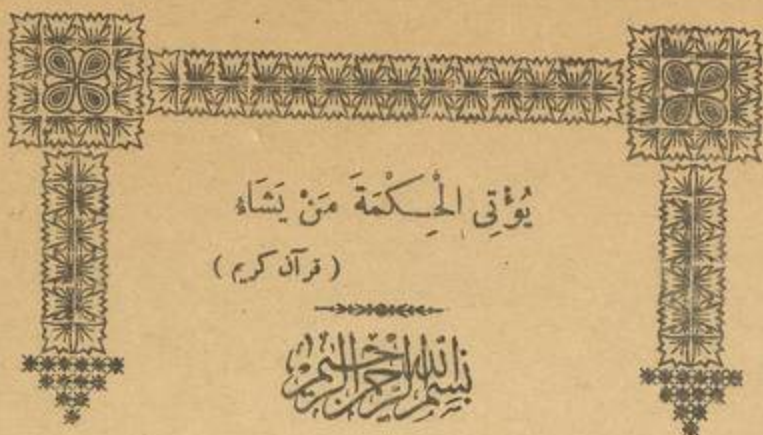 يُؤْتِي الْحِكْمَةَ مَنْ يَشَاء
( قرآن كريم )
بسم الله الرحمن الرحيم